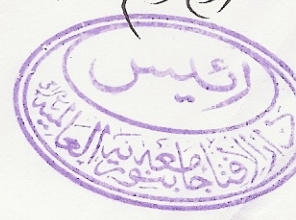 رئيس
دار الافتاء جامعه بنوريه العالميه